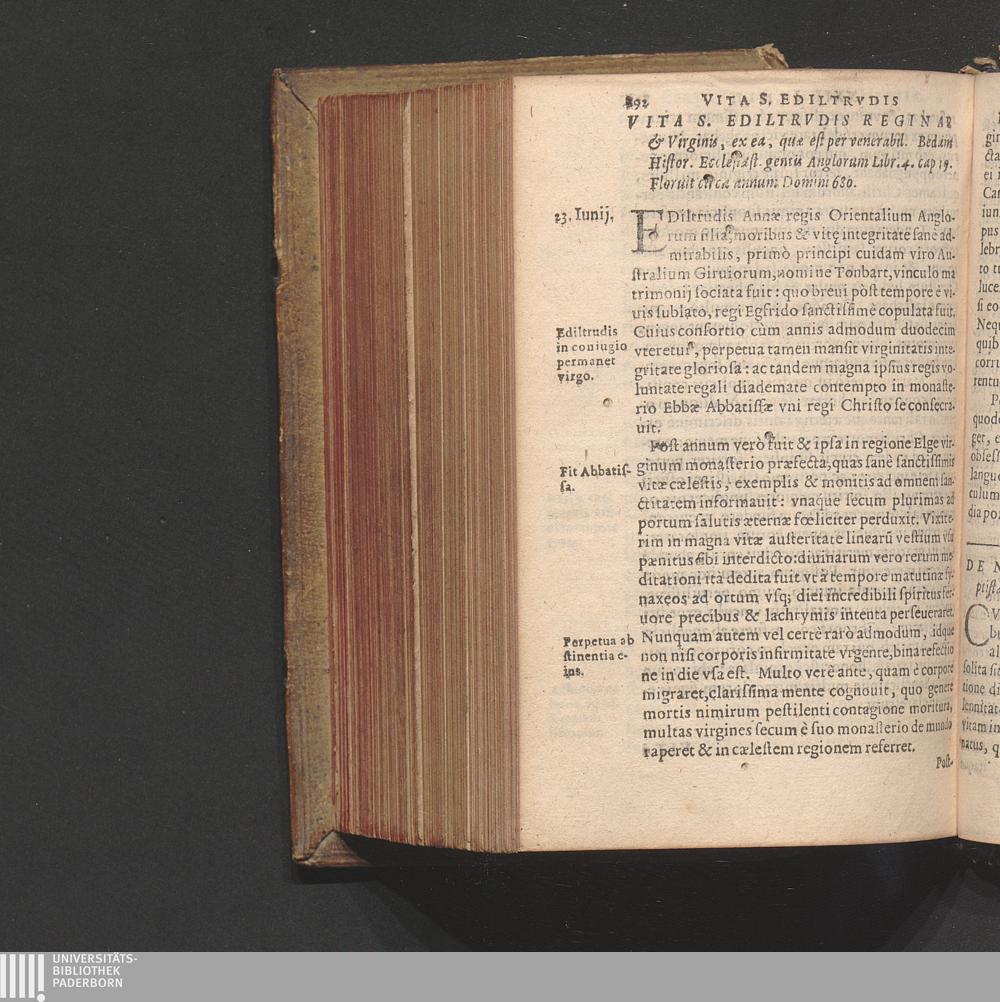 292 VITA S. EDILTRVDIS
VITA S. EDILTRVDIS REGINAE
& Virginis, ex ea, quæ est per venerabil. Bedam
Histor. Ecclesiast. gentis Anglorum Libr. 4. cap 19.
Floruit circa annum Domini 680.
23. Iunij.
EDiltrudis Annæ regis Orientalium Anglo-
rum filia, moribus & vitę integritate sanè ad-
mirabilis, primò principi cuidam viro Au-
stralium Giruiorum, nomine Tonbart, vinculo ma
trimonij sociata fuit: quo breui pòst tempore è vi-
uis sublato, regi Egfrido sanctissimè copulata fuit.
Ediltrudis
in coniugio
permanet
virgo.
Cuius consortio cùm annis admodum duodecim
vteretur, perpetua tamen mansit virginitatis inte-
gritate gloriosa: ac tandem magna ipsius regis vo-
luntate regali diademate contempto in monaste-
rio Ebbæ Abbatissæ vni regi Christo se consecra-
uit.
Post annum verò fuit & ipsa in regione Elge vir-
Fit Abbatis-
sa.
ginum monasterio præfecta, quas sanè sanctissimis
vitæ cælestis, exemplis & monitis ad omnem san-
ctitatem informauit: vnaque secum plurimas ad
portum salutis æternæ fœliciter perduxit. Vixit e-
rim in magna vitæ austeritate linearū vestium vsu
pænitus sibi interdicto: diuinarum vero rerum me-
ditationi ita dedita fuit vt à tempore matutinæ sy-
naxeos ad ortum vsq; diei incredibili spiritus fer-
uore precibus & lachrymis intenta perseueraret.
Perpetua ab
stinentia e-
ius.
Nunquam autem vel certè rarò admodum, idque
non nisi corporis infirmitate vrgente, bina refectio
ne in die vsa est. Multo verè ante, quam è corpore
migraret, clarissima mente cognouit, quo genere
mortis nimirum pestilenti contagione moritura,
multas virgines secum è suo monasterio de mundo
raperet & in cælestem regionem referret.
Post-
DE N
UNIVERSITÄTS-
BIBLIOTHEK
PADERBORN